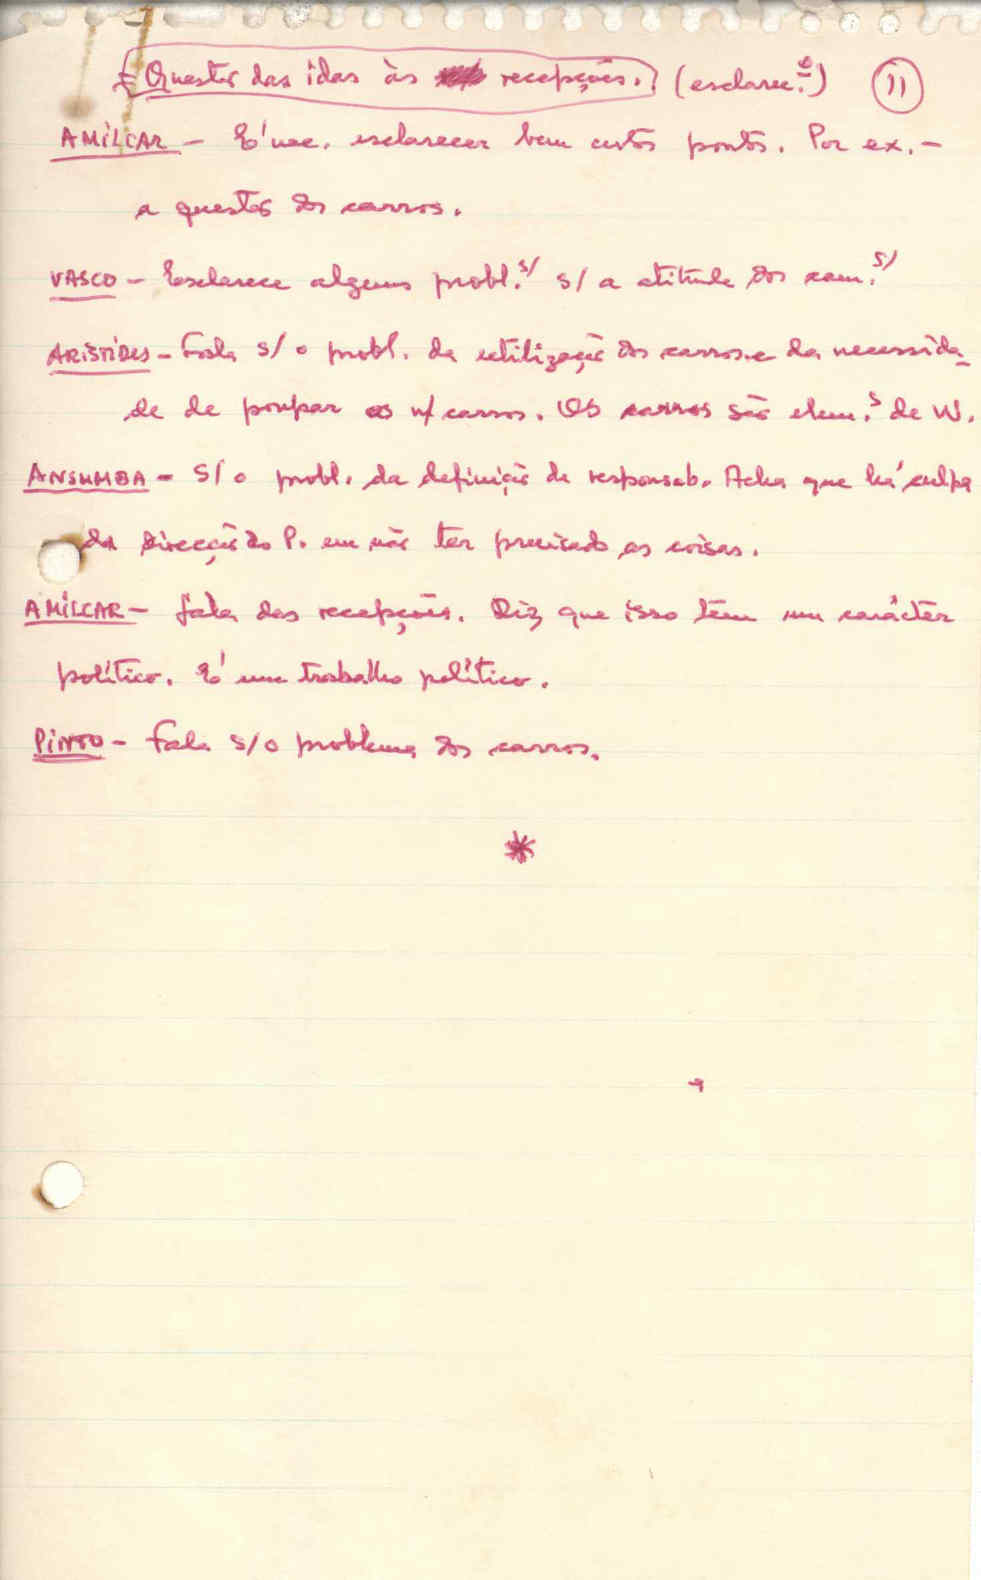 Questão das idas às recepções. (esclarec.º) 11
AMÍLCAR - É nec. esclarecer bem certos pontos. Por ex. -
a questão dos carros.
VASCO - Esclarece alguns probl.s/ s/ a atitude dos cam.s/
ARISTIDES - Fala s/ o probl. da utilização dos carros e da necessida-
de de poupar os n/ carros. Os carros são elem.s de
ANSUMBA - S/ o probl. da definição de responsab. Acha que há culpa
da Direcção do P. em não ter precisado as coisas.
AMÍLCAR - fala das recepções. Diz que isso tem um carácter
político. É um trabalho político.
PINTO - Fala s/ o problema dos carros.
*